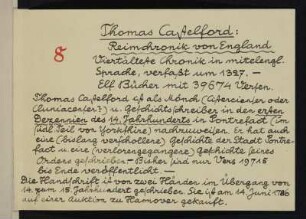 Thomas Castelford:
8
Reimchronik von England
Viertälteste Chronik in mittelengl.
Sprache, verfaßt um 1327. –
Elf Bücher mit 39674 Versen.
Thomas Castelford ist als Mönch (Cistersienser oder
Cluniacenser?) u. Geschichtsschreiber in den ersten
Dezennien des 14. Jahrhunderts in Pontrefact (im
südl. Teil von Yorkshire) nachzuweisen. Er hat auch
eine (bislang verschollene) Geschichte der Stadt Pontre-
fact u. eine (verlorengegangene) Geschichte seines
Ordens geschrieben – Bisher sind nur Vers 19718
bis Ende veröffentlicht –
Die Handschrift ist von zwei Händen im Übergang vom
14. zum 15. Jahrhundert geschrieben. Sie ist am 14. Juni 1786
auf einer Auktion zu Hannover gekauft.